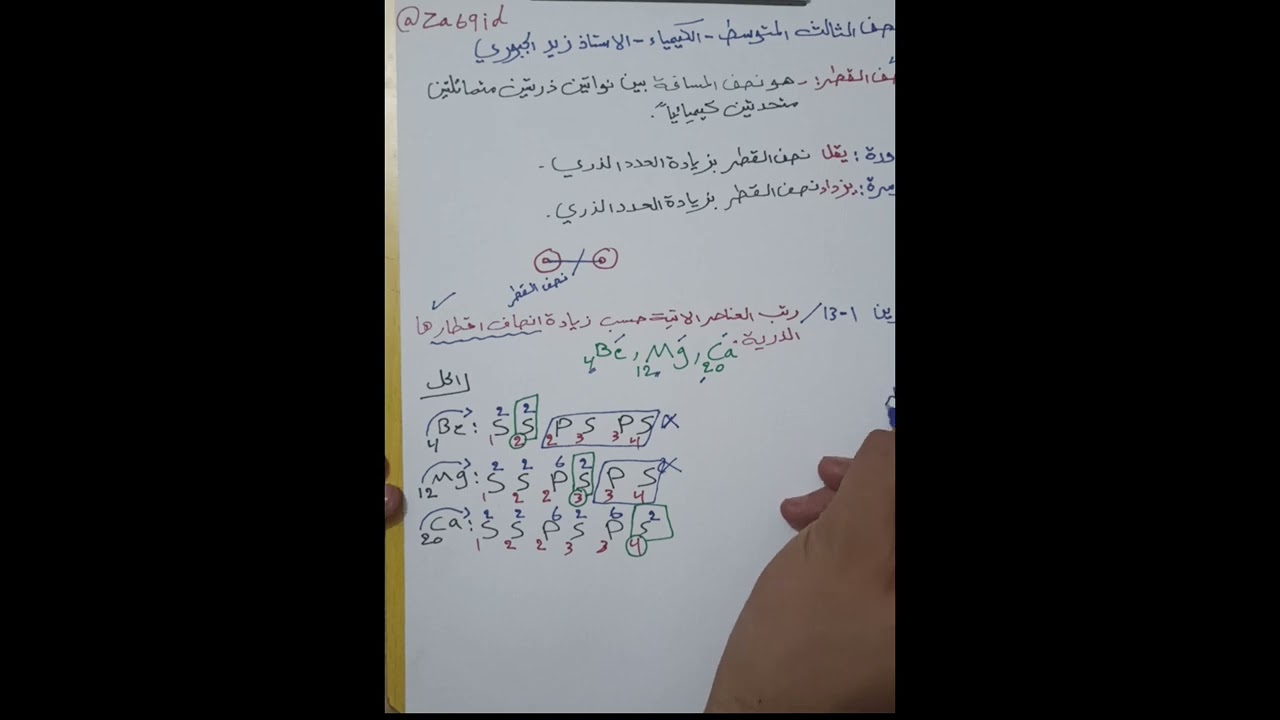 @Za69id
صف الثالث المتوسط - الكيمياء - الاستاذ زيد الجبوري
القطر: - هو نصف المسافة بين نواتين ذرتين متماثلتين
متحدتين كيميائياً.
يقل نصف القطر بزيادة العدد الذري -
يزداد نصف القطر بزيادة العدد الذري.
نصف القطر
1-13/ رتب العناصر الاتية حسب زيادة انصاف اقطارها
الذرية.
₄Be, ₁₂Mg, ₂₀Ca
الحل
₄Be: ₁S² ₂S² ₂P ₃S ₃P ₄S X
₁₂Mg: ₁S² ₂S² ₂P⁶ ₃S² ₃P ₄S X
₂₀Ca: ₁S² ₂S² ₂P⁶ ₃S² ₃P⁶ ₄S²